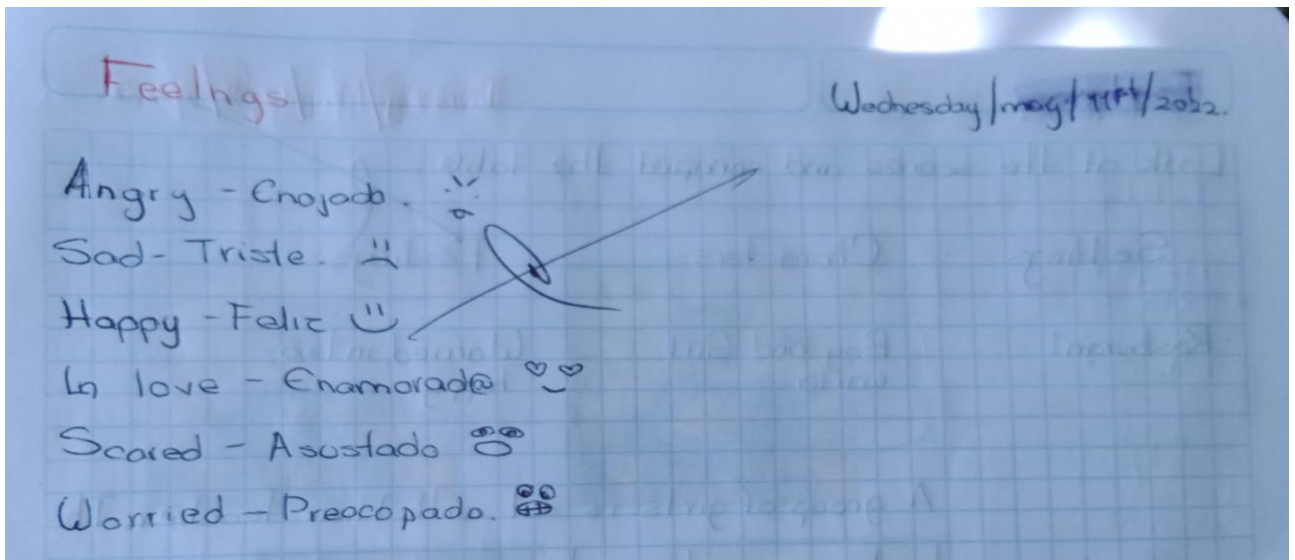 Feelngs
Wednesday/may/11th/2022.
Angry - Enojado.
Sad - Triste.
Happy - Feliz
In love - Enamorad@
Scared - Asustado
Worried - Preocopado.